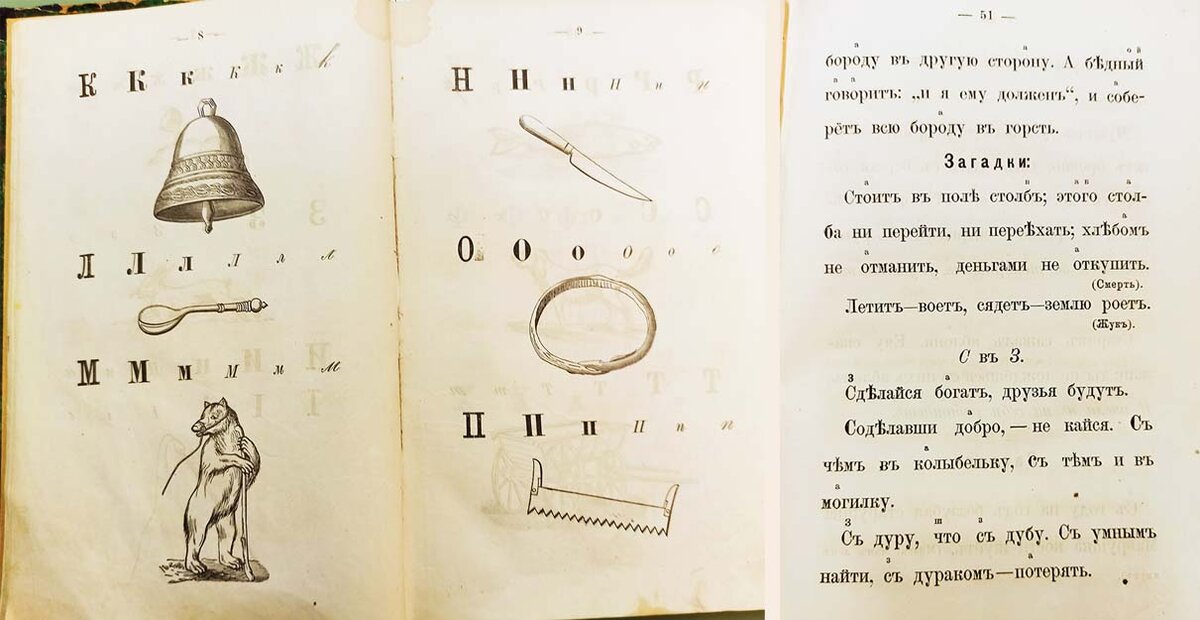 — 8 —
К К к к к к
Л Л л л л л
М М м м м м
— 9 —
Н Н н н н н
О О о о о о
П П п п п п
— 51 —
а а о й
бороду въ другую сторону. А бѣдный
а а а
говоритъ: „и я ему долженъ“, и собе-
а
рётъ всю бороду въ горсть.
Загадки:
а п а в а
Стоитъ въ полѣ столбъ; этого стол-
а
ба ни перейти, ни переѣхать; хлѣбомъ
а а
не отманить, деньгами не откупить.
(Смерть).
Летитъ—воетъ, сядетъ—землю роетъ.
(Жукъ).
С въ З.
з а
Сдѣлайся богатъ, друзья будутъ.
а
Содѣлавши добро, — не кайся. Съ
а
чѣмъ въ колыбельку, съ тѣмъ и въ
а
могилку.
з ш з
Съ дуру, что съ дубу. Съ умнымъ
з а
найти, съ дуракомъ—потерять.